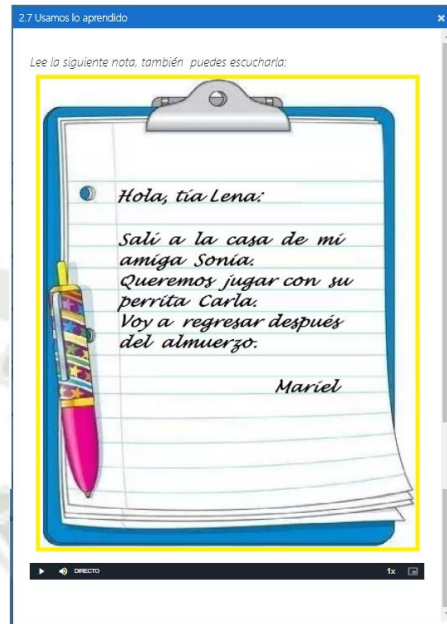 2.7 Usamos lo aprendido
Lee la siguiente nota, también puedes escucharla:
Hola, tía Lena:
Salí a la casa de mi
amiga Sonia.
Queremos jugar con su
perrita Carla.
Voy a regresar después
del almuerzo.
Mariel
DIRECTO
1x